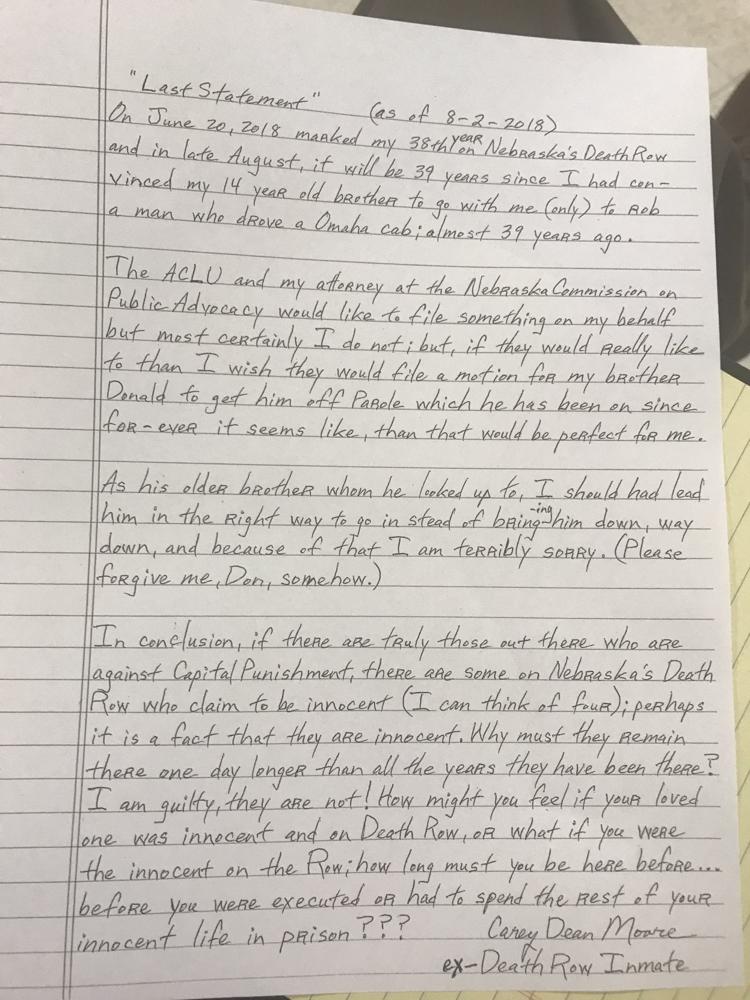 "Last Statement" (as of 8-2-2018)
On June 20, 2018 marked my 38th year on Nebraska's Death Row
and in late August, it will be 39 years since I had con-
vinced my 14 year old brother to go with me (only) to rob
a man who drove a Omaha cab; almost 39 years ago.
The ACLU and my attorney at the Nebraska Commission on
Public Advocacy would like to file something on my behalf
but most certainly I do not; but, if they would really like
to than I wish they would file a motion for my brother
Donald to get him off Parole which he has been on since
for-ever it seems like, than that would be perfect for me.
As his older brother whom he looked up to, I should had lead
him in the right way to go in stead of bring-ing him down, way
down, and because of that I am terribly sorry. (Please
forgive me, Don, somehow.)
In conclusion, if there are truly those out there who are
against Capital Punishment, there are some on Nebraska's Death
Row who claim to be innocent (I can think of four); perhaps
it is a fact that they are innocent. Why must they remain
there one day longer than all the years they have been there?
I am guilty, they are not! How might you feel if your loved
one was innocent and on Death Row, or what if you were
the innocent on the Row; how long must you be here before...
before you were executed or had to spend the rest of your
innocent life in prison??? Carey Dean Moore
ex-Death Row Inmate